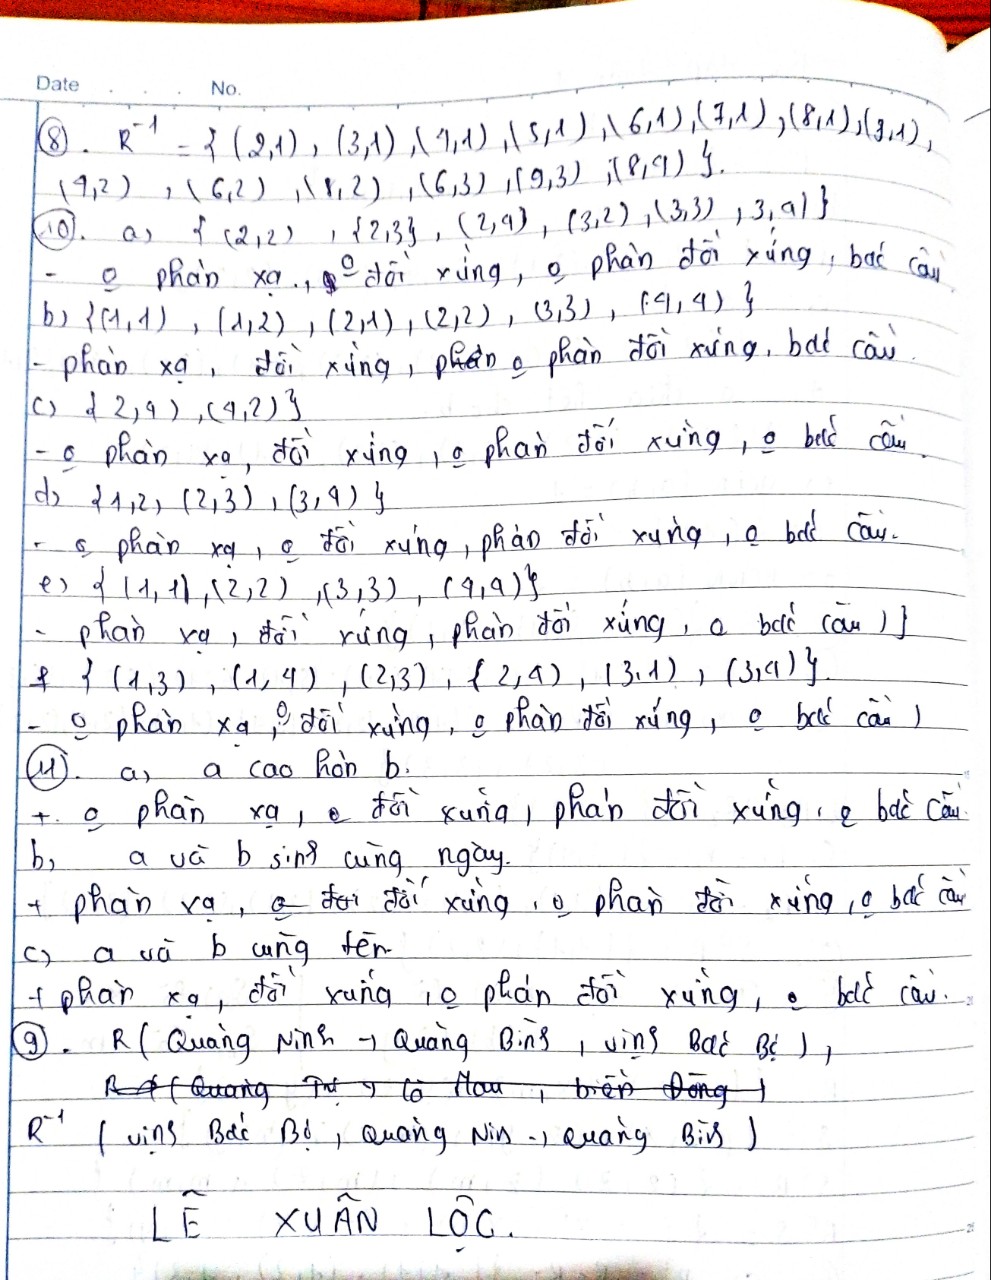 Date . . . No.
⑧. R⁻¹ = { (2,1), (3,1), (4,1), (5,1), (6,1), (7,1), (8,1), (9,1),
(4,2), (6,2), (8,2), (6,3), (9,3), (8,4) }.
⑩. a) { (2,2), {2,3}, (2,4), (3,2), (3,3), 3,4) }
- o phản xạ, o đối xứng, o phản đối xứng, bắc cầu
b) {(1,1), (1,2), (2,1), (2,2), (3,3), (4,4) }
- phản xạ, đối xứng, o phản đối xứng, bắc cầu.
c) { 2,4), (4,2) }
- o phản xạ, đối xứng, o phản đối xứng, o bắc cầu.
d) {1,2, (2,3), (3,4) }
- o phản xạ, o đối xứng, phản đối xứng, o bắc cầu.
e) { (1,1), (2,2), (3,3), (4,4) }
- phản xạ, đối xứng, phản đối xứng, o bắc cầu ) }
f { (1,3), (1,4), (2,3), { 2,4), (3,1), (3,4) }.
- o phản xạ, o đối xứng, o phản đối xứng, o bắc cầu )
⑪. a) a cao hơn b.
+. o phản xạ, o đối xứng, phản đối xứng, o bắc cầu.
b) a và b sinh cùng ngày.
+ phản xạ, đối xứng, o phản đối xứng, o bắc cầu
c) a và b cùng tên
+ phản xạ, đối xứng, o phản đối xứng, o bắc cầu.
⑨. R ( Quảng Ninh → Quảng Bình, vịnh Bắc Bộ ),
R ( Quảng Trị → Cà Mau, biển Đông )
R⁻¹ ( vịnh Bắc Bộ, Quảng Nin → Quảng Bình )
LÊ XUÂN LỘC.